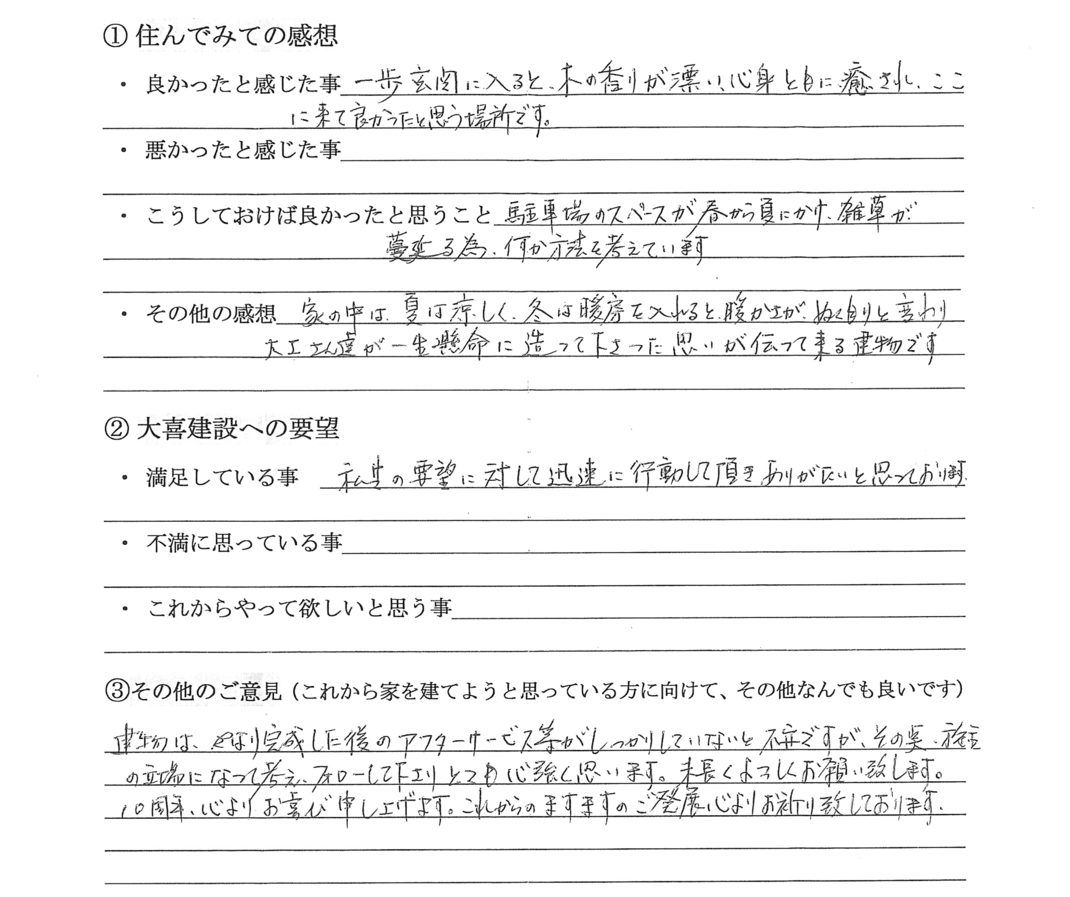 ① 住んでみての感想
・ 良かったと感じた事 一歩玄関に入ると、木の香りが漂い、心身と共に癒され、ここ
に来て良かったと思う場所です。
・ 悪かったと感じた事
・ こうしておけば良かったと思うこと 駐車場のスペースが春から夏にかけ、雑草が
蔓延る為、何か方法を考えています
・ その他の感想 家の中は、夏は涼しく、冬は暖房を入れると、暖かさが、ぬく自りと変わり
大工さん達が一生懸命に造って下さった思いが伝って来る建物です
② 大喜建設への要望
・ 満足している事 私共の要望に対して迅速に行動して頂きありがたいと思っております。
・ 不満に思っている事
・ これからやって欲しいと思う事
③その他のご意見（これから家を建てようと思っている方に向けて、その他なんでも良いです）
建物は、やはり完成した後のアフターサービス等がしっかりしていないと不安ですが、その点、施主
の立場になって考え、フォローして下さりとても心強く思います。末長くよろしくお願い致します。
10周年、心よりお喜び申し上げます。これからのますますのご発展、心よりお祈り致しております。